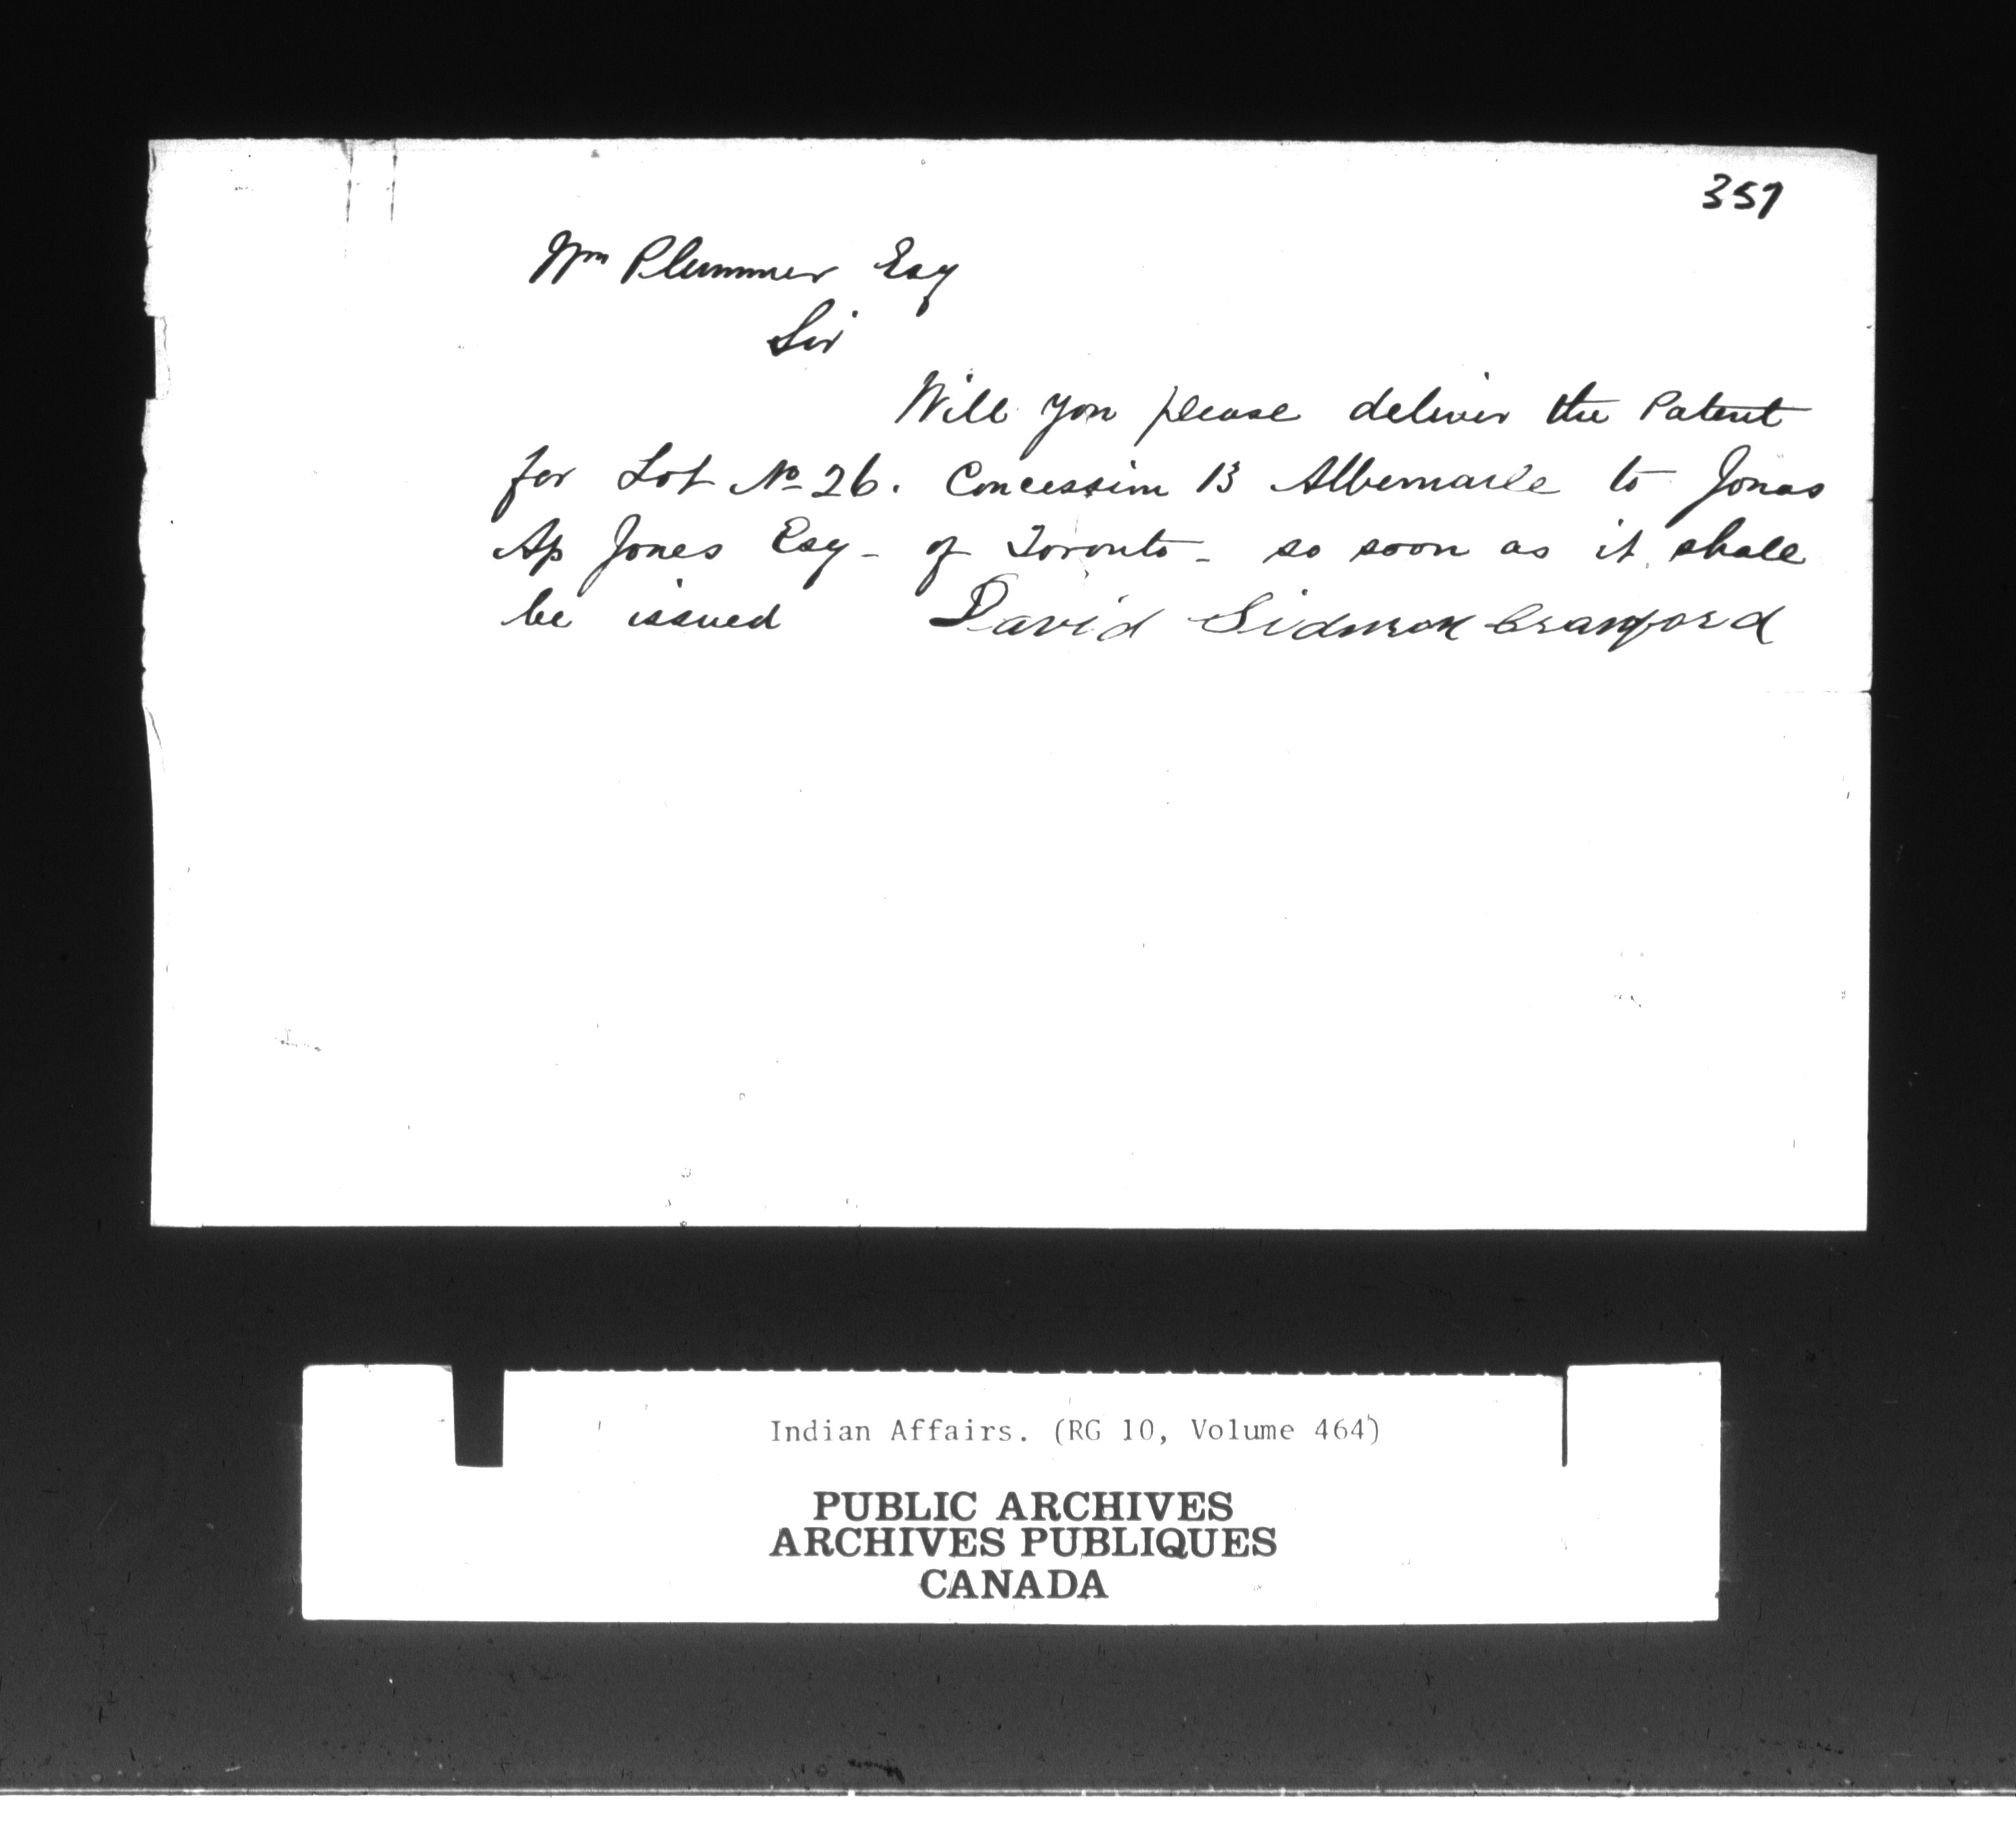 357
Wm Plummer Esq
Sir
Will you please deliver the Patent
for Lot No 26. Concession 13 Albemarle to Jonas
Ap Jones Esq - of Toronto - so soon as it shall
be issued David Crawford
Indian Affairs. (RG 10, Volume 464)
PUBLIC ARCHIVES
ARCHIVES PUBLIQUES
CANADA